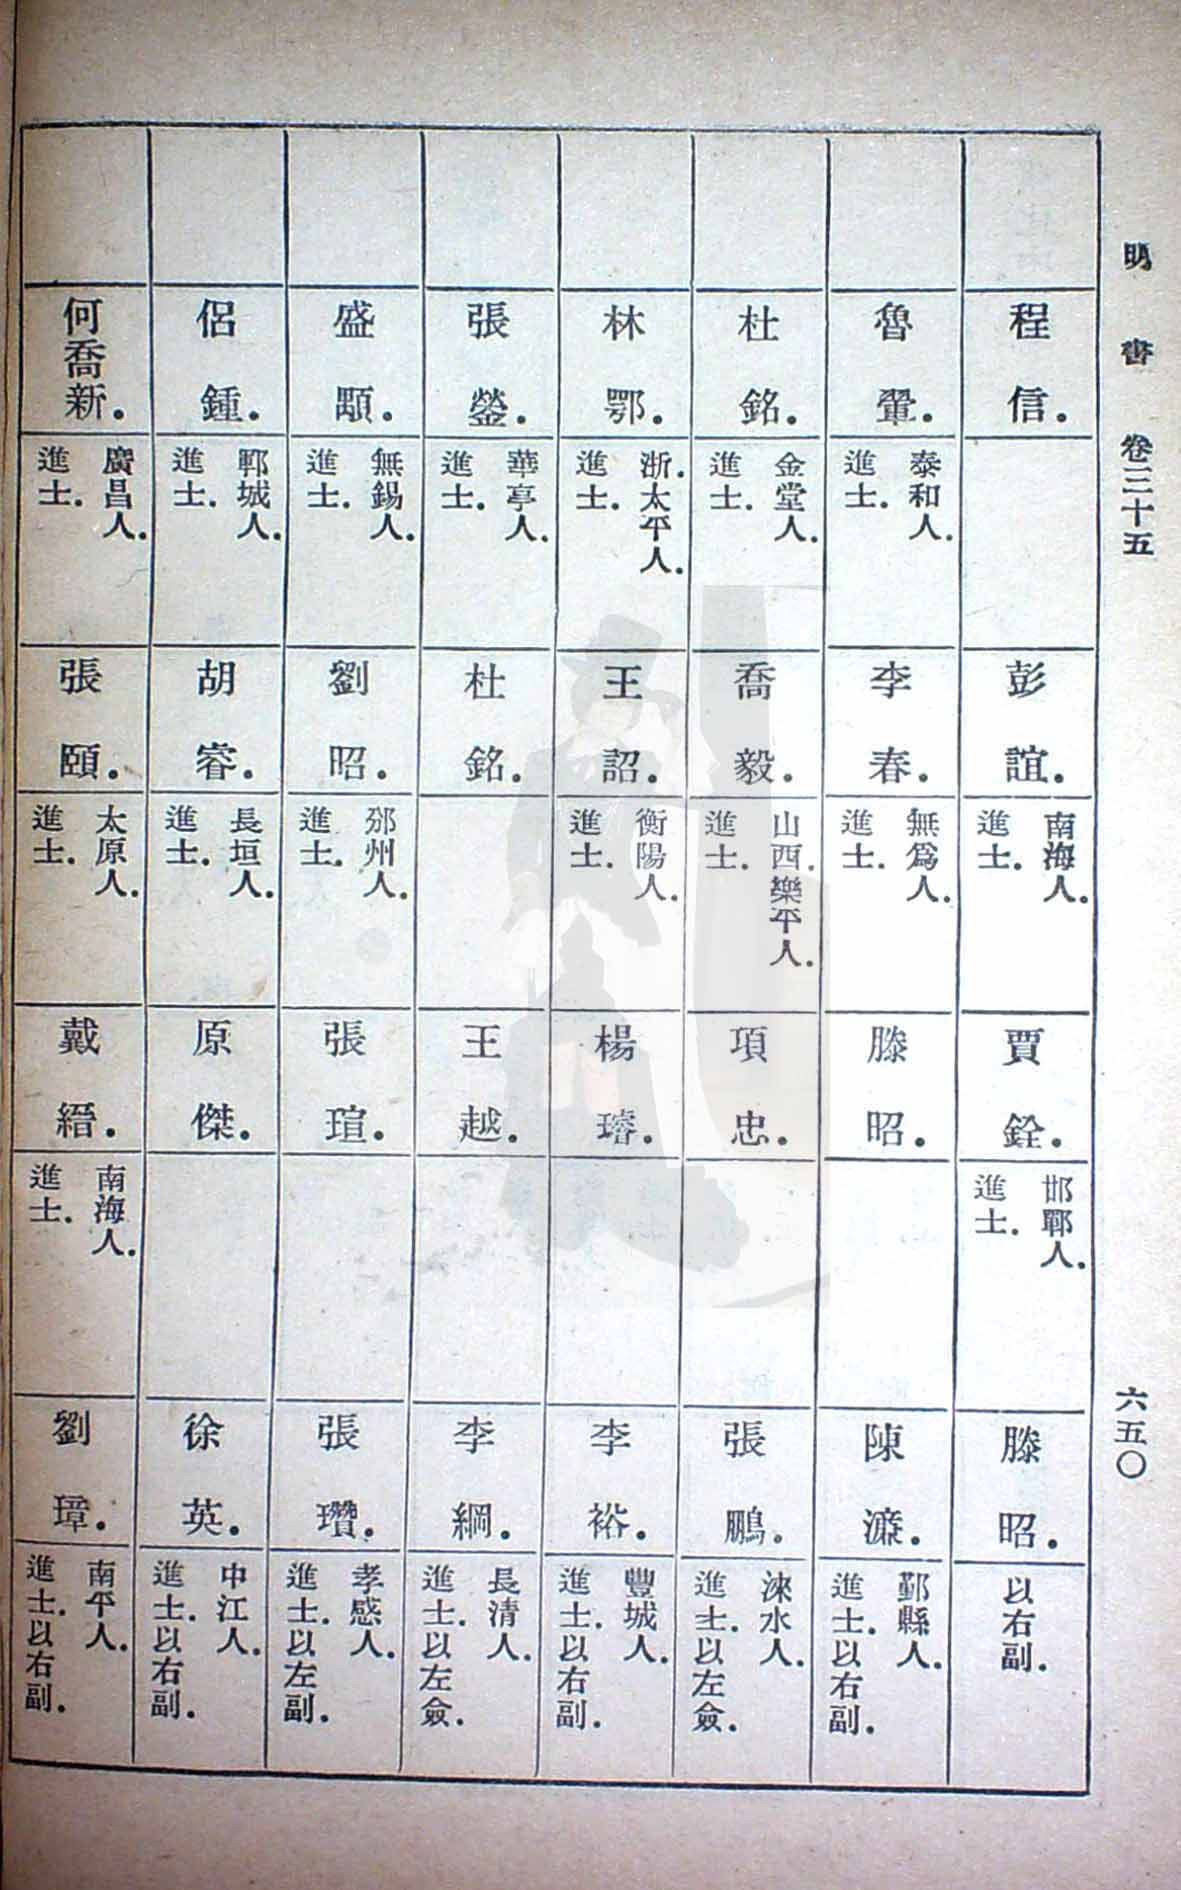 明書 卷三十五
六五〇
程信.
彭誼.
南海人.
進士.
賈銓.
邯鄲人.
進士.
滕昭.
以右副.
魯翬.
泰和人.
進士.
李春.
無爲人.
進士.
滕昭.
陳濂.
鄞縣人.
進士.以右副.
杜銘.
金堂人.
進士.
喬毅.
山西.樂平人.
進士.
項忠.
張鵬.
淶水人.
進士.以左僉.
林鄂.
浙.太平人.
進士.
王詔.
衡陽人.
進士.
楊璿.
李裕.
豐城人.
進士.以右副.
張鎣.
華亭人.
進士.
杜銘.
王越.
李綱.
長清人.
進士.以左僉.
盛顒.
無錫人.
進士.
劉昭.
邠州人.
進士.
張瑄.
張瓚.
孝感人.
進士.以左副.
侶鍾.
鄆城人.
進士.
胡睿.
長垣人.
進士.
原傑.
徐英.
中江人.
進士.以右副.
何喬新.
廣昌人.
進士.
張頤.
太原人.
進士.
戴縉.
南海人.
進士.
劉璋.
南平人.
進士.以右副.